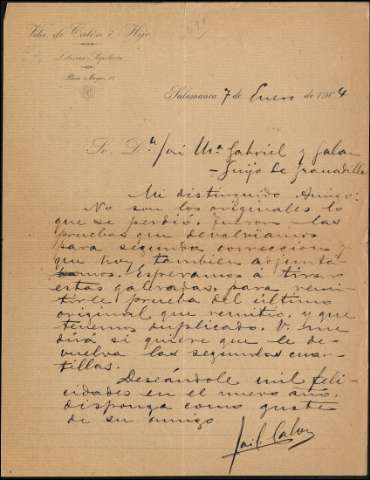 Vda. de Calón é Hijo
Librería Papelería
Plaza Mayor,
Salamanca 7 de Enero de 1904
Sr. Dn José Mª Gabriel y Galan
Guijo de Granadilla
Mi distinguido Amigo:
No son los originales lo
que se perdió, fueron las
pruebas que devolviamos
para segunda corrección y
que hoy tambien adjunta-
mos. Esperamos á tirar
estas galeradas, para remi-
tirle prueba del último
original que remitió, y que
tenemos duplicado. V. me
dirá si quiere que le de-
vuelva las segundas cuar-
tillas.
Deseándole mil feli-
cidades en el nuevo año,
disponga como guste
de su amigo
Calon